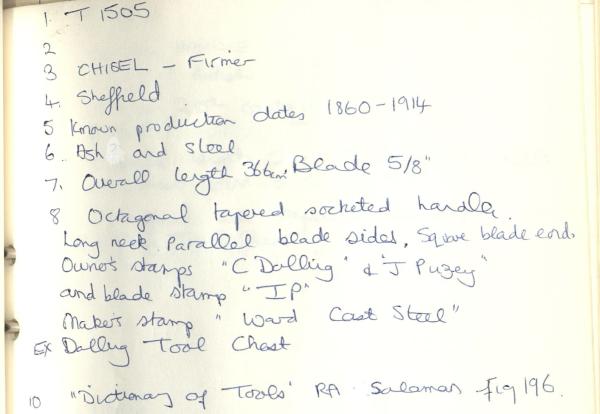 1. T 1505
2
3 CHISEL – Firmer
4. Sheffield
5 Known production dates 1860-1914
6. Ash ? and steel
7. Overall length 366cm. Blade 5/8"
8 Octagonal tapered socketed handle.
Long neck. Parallel blade sides, Square blade end.
Owner's stamps "C Dalling" & "J Puzey"
and blade stamp "IP"
Maker's stamp " Ward Cast Steel"
Ex Dalling Tool Chest
10 "Dictionary of Tools' RA Salaman fig 196.